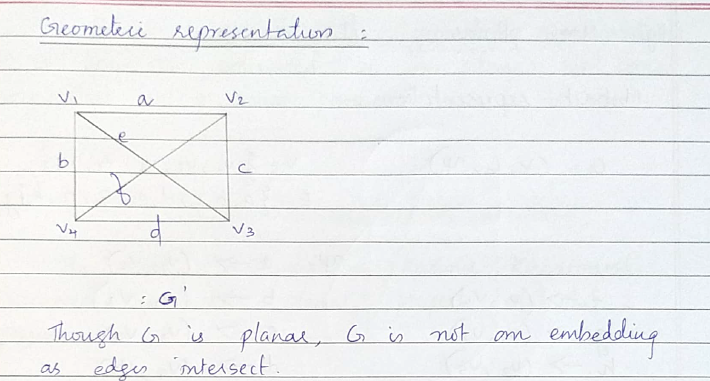 Geometric representation :
V1 a V2
e
b c
f
V4 d V3
: G'
Though G is planar, G is not an embedding
as edges intersect.